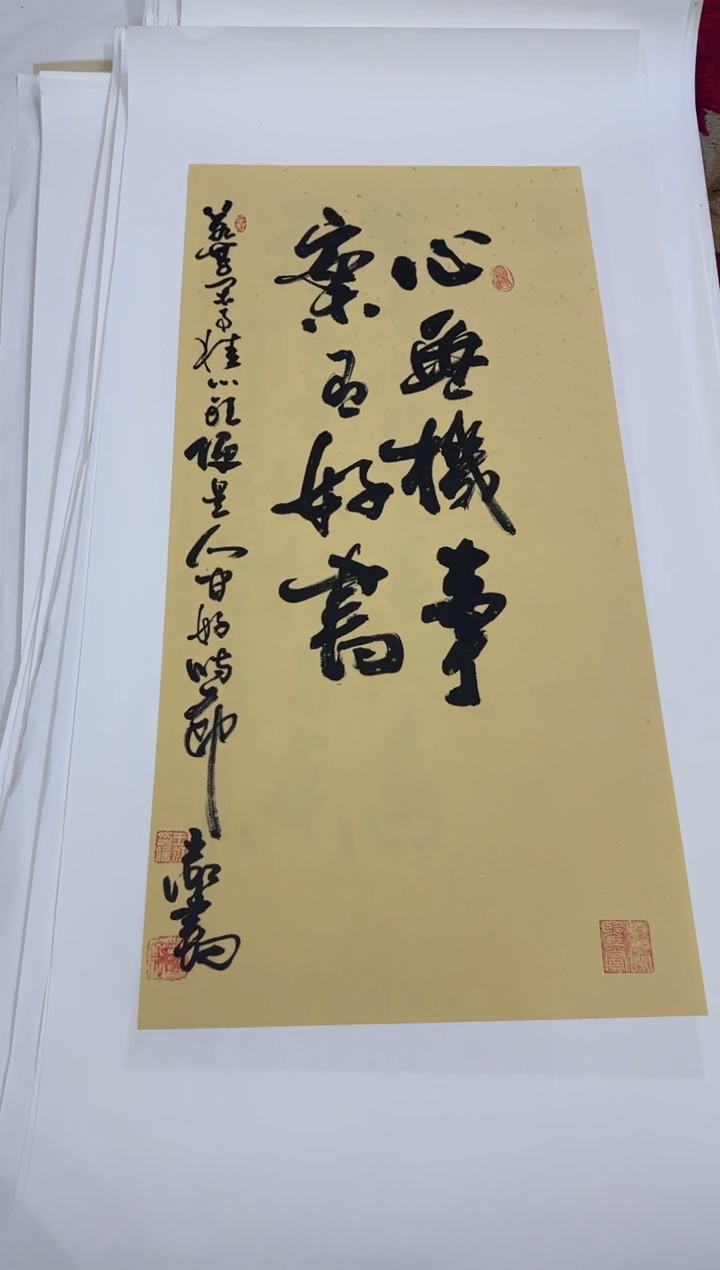 心無機事
案有好書
若無閑事掛心頭便是人間好時節